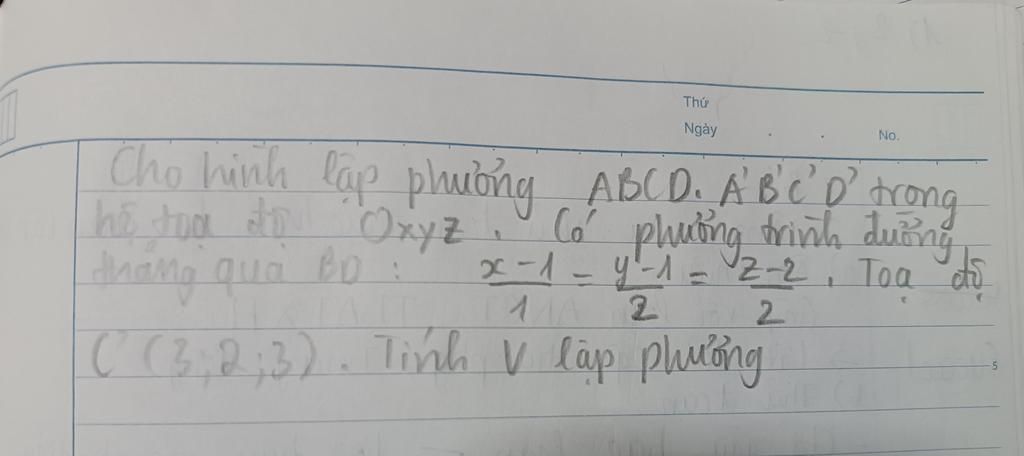 Thứ
Ngày . . No.
Cho hình lập phương ABCD. A'B'C'D' trong
hệ toạ độ Oxyz. Có phương trình đường
thẳng qua BD: x-1/1 = y-1/2 = z-2/2. Toạ độ
C'(3;2;3). Tính V lập phương
5